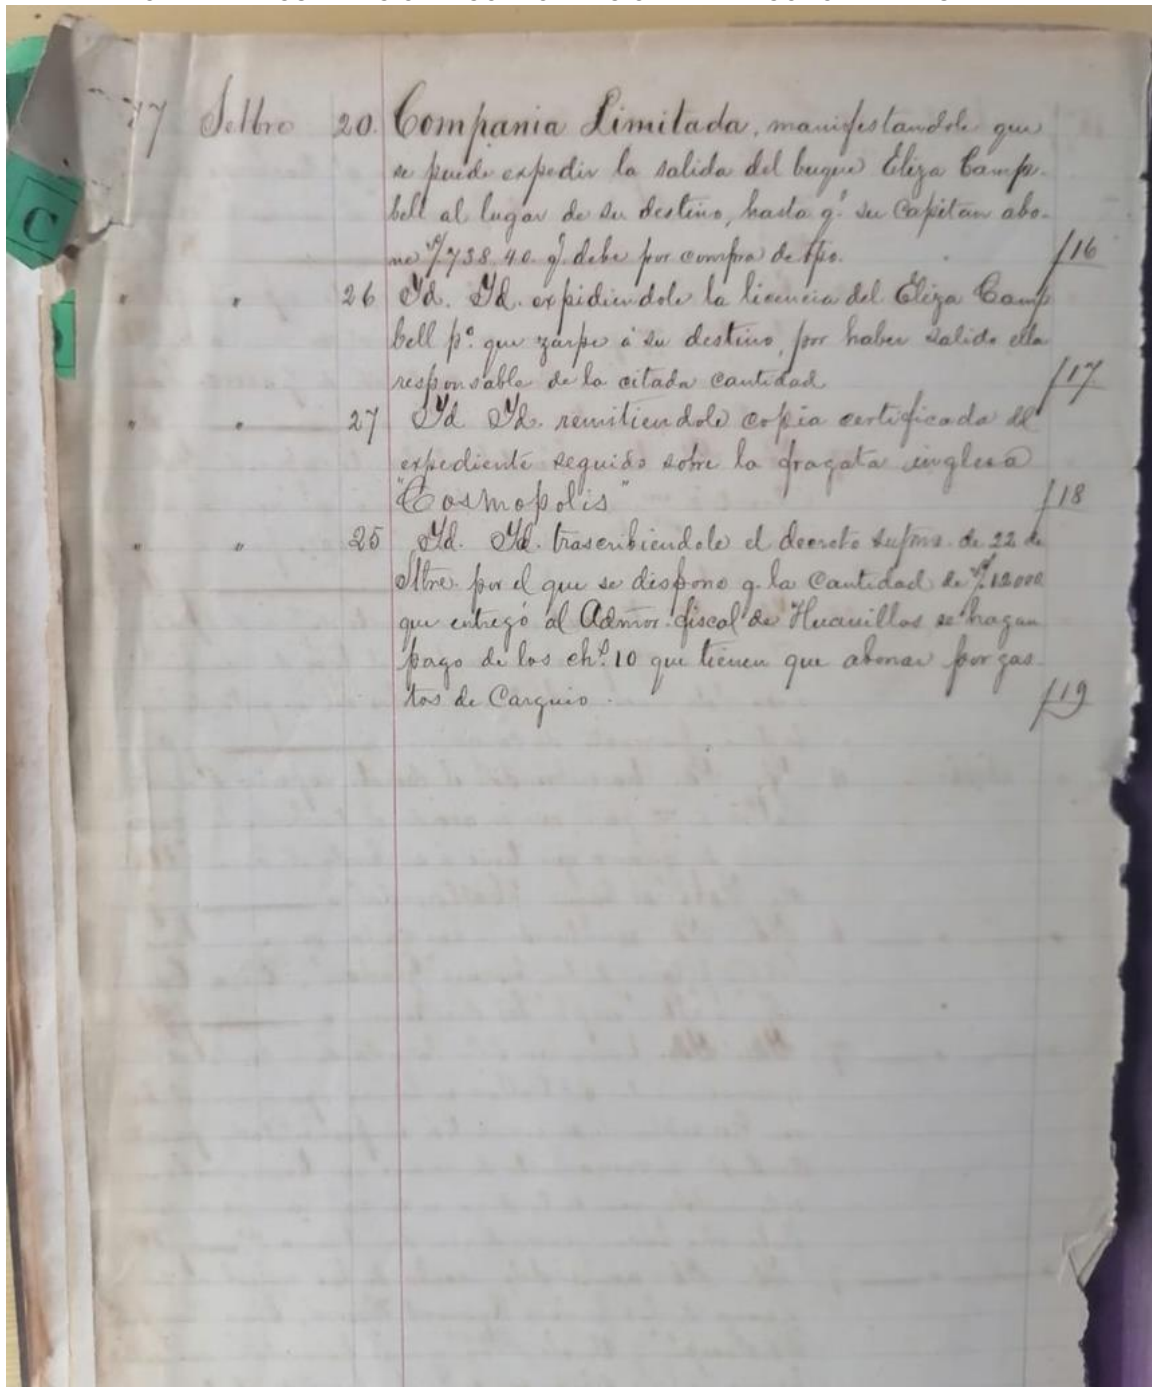 77 Setbre 20. Compania Limitada, manifestandole que
se puede expedir la salida del buque Eliza Camp-
bell al lugar de su destino, hasta q.e su Capitan abo-
ne S/738.40. q. debe por compra de f/16
" " 26 Yd. Yd. expidiendole la licencia del Eliza Camp
bell pa. que zarpe á su destino, por haber salido ella
responsable de la citada cantidad f/17.
" " 27 Yd Yd. remitiendole copia certificada del
expediente seguido sobre la fragata inglesa
"Cosmopolis" f18
" " 25 Yd. Yd. trascribiendole el decreto supmo. de 22 de
Stbre. por el que se dispone q. la Cantidad de S/.12000
que entregó al Admor. fiscal de Huanillos se hagan
pago de los ch.s 10 que tienen que abonar por gas-
tos de Carguio. f19
C